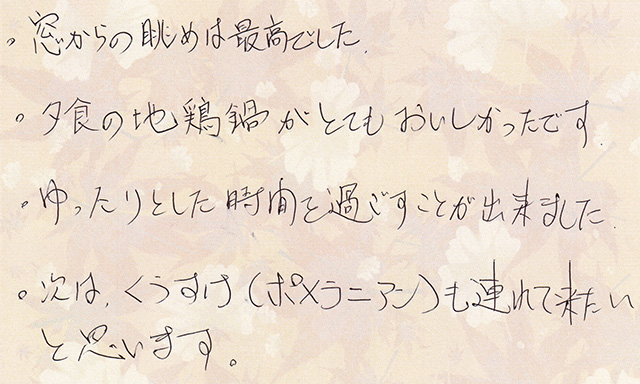 。窓からの眺めは最高でした.
。夕食の地鶏鍋がとてもおいしかったです.
。ゆったりとした時間を過ごすことが出来ました.
。次は、くうすけ(ポメラニアン)も連れて来たい
と思います。